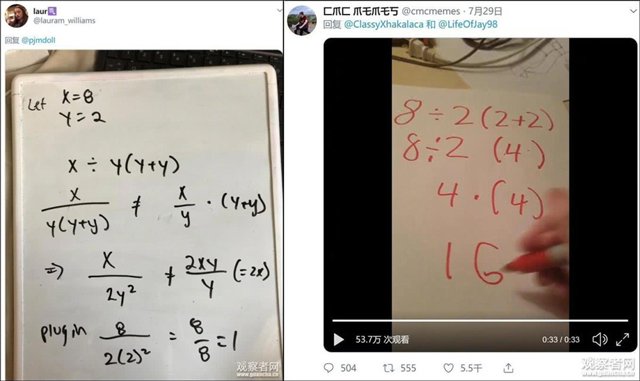 laur
@lauram_williams
回复 @pjmdoll
Let X=8
Y=2
x ÷ y(y+y)
x / y(y+y) ≠ x / y · (y+y)
=> x / 2y² ≠ 2xy / y (=2x)
plug in 8 / 2(2)² = 8 / 8 = 1
观察者网
www.guancha.cn
@cmcmemes · 7月29日
回复 @ClassyXhakalaca 和 @LifeOfJay98
8÷2(2+2)
8÷2 (4)
4·(4)
16
53.7万 次观看
0:33 / 0:33
504
777
5.5千
观察者网
www.guancha.cn